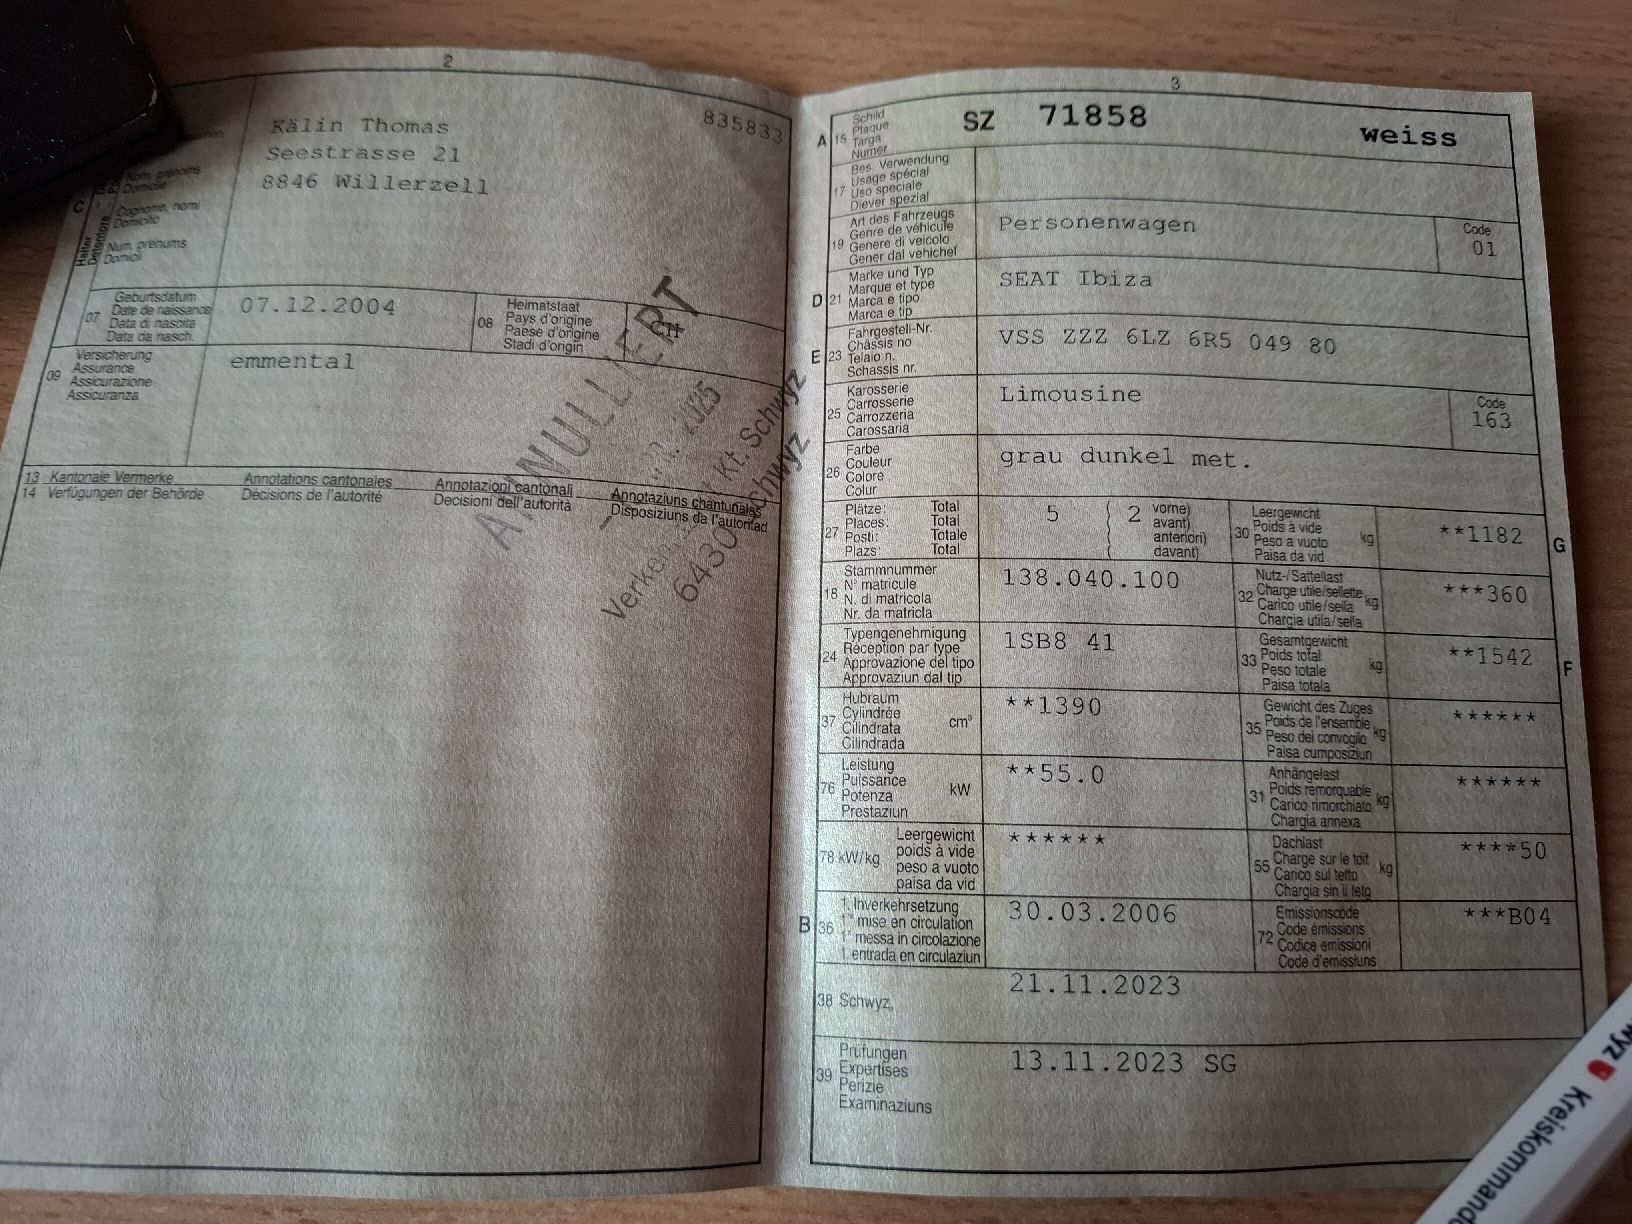 2
835833
Kälin Thomas
Seestrasse 21
8846 Willerzell
C
Halter
Nom, prénoms
Domicile
Cognome, nomi
Domicilio
Num, prenums
Domicil
07
Geburtsdatum
Date de naissance
Data di nascita
Data da nasch.
07.12.2004
08
Heimatstaat
Pays d'origine
Paese d'origine
Stadi d'origin
CH
09
Versicherung
Assurance
Assicurazione
Assicuranza
emmental
13 Kantonale Vermerke Annotations cantonales Annotazioni cantonali Annotaziuns chantunalas
14 Verfügungen der Behörde Décisions de l'autorité Decisioni dell'autorità Disposiziuns da l'autoritad
ANNULLIERT
2025
Kt. Schwyz
6430 Schwyz
3
A 15
Schild
Plaque
Targa
Numer
SZ 71858 weiss
17
Bes. Verwendung
Usage spécial
Uso speciale
Diever spezial
19
Art des Fahrzeugs
Genre de véhicule
Genere di veicolo
Gener dal vehichel
Personenwagen
Code
01
D 21
Marke und Typ
Marque et type
Marca e tipo
Marca e tip
SEAT Ibiza
E 23
Fahrgestell-Nr.
Châssis no
Telaio n.
Schassis nr.
VSS ZZZ 6LZ 6R5 049 80
25
Karosserie
Carrosserie
Carrozzeria
Carossaria
Limousine
Code
163
26
Farbe
Couleur
Colore
Colur
grau dunkel met.
27
Plätze: Total
Places: Total
Posti: Totale
Plazs: Total
5 ( 2 vorne)
( avant)
( anteriori)
( davant)
30
Leergewicht
Poids à vide
Peso a vuoto
Paisa da vid
kg
**1182
G
18
Stammnummer
N° matricule
N. di matricola
Nr. da matricla
138.040.100
32
Nutz-/Sattellast
Charge utile/sellette
Carico utile/sella
Chargia utila/sella
kg
***360
24
Typengenehmigung
Réception par type
Approvazione del tipo
Approvaziun dal tip
1SB8 41
33
Gesamtgewicht
Poids total
Peso totale
Paisa totala
kg
**1542
F
37
Hubraum
Cylindrée
Cilindrata
Cilindrada
cm³
**1390
35
Gewicht des Zuges
Poids de l'ensemble
Peso del convoglio
Paisa cumposiziun
kg
******
76
Leistung
Puissance
Potenza
Prestaziun
kW
**55.0
31
Anhängelast
Poids remorquable
Carico rimorchiato
Chargia annexa
kg
******
78 kW/kg
Leergewicht
poids à vide
peso a vuoto
paisa da vid
******
55
Dachlast
Charge sur le toit
Carico sul tetto
Chargia sin il tetg
kg
****50
B 36
1. Inverkehrsetzung
1re mise en circulation
1a messa in circolazione
1. entrada en circulaziun
30.03.2006
72
Emissionscode
Code émissions
Codice emissioni
Code d'emissiuns
***B04
38 Schwyz,
21.11.2023
39
Prüfungen
Expertises
Perizie
Examinaziuns
13.11.2023 SG
wyz Kreiskommando